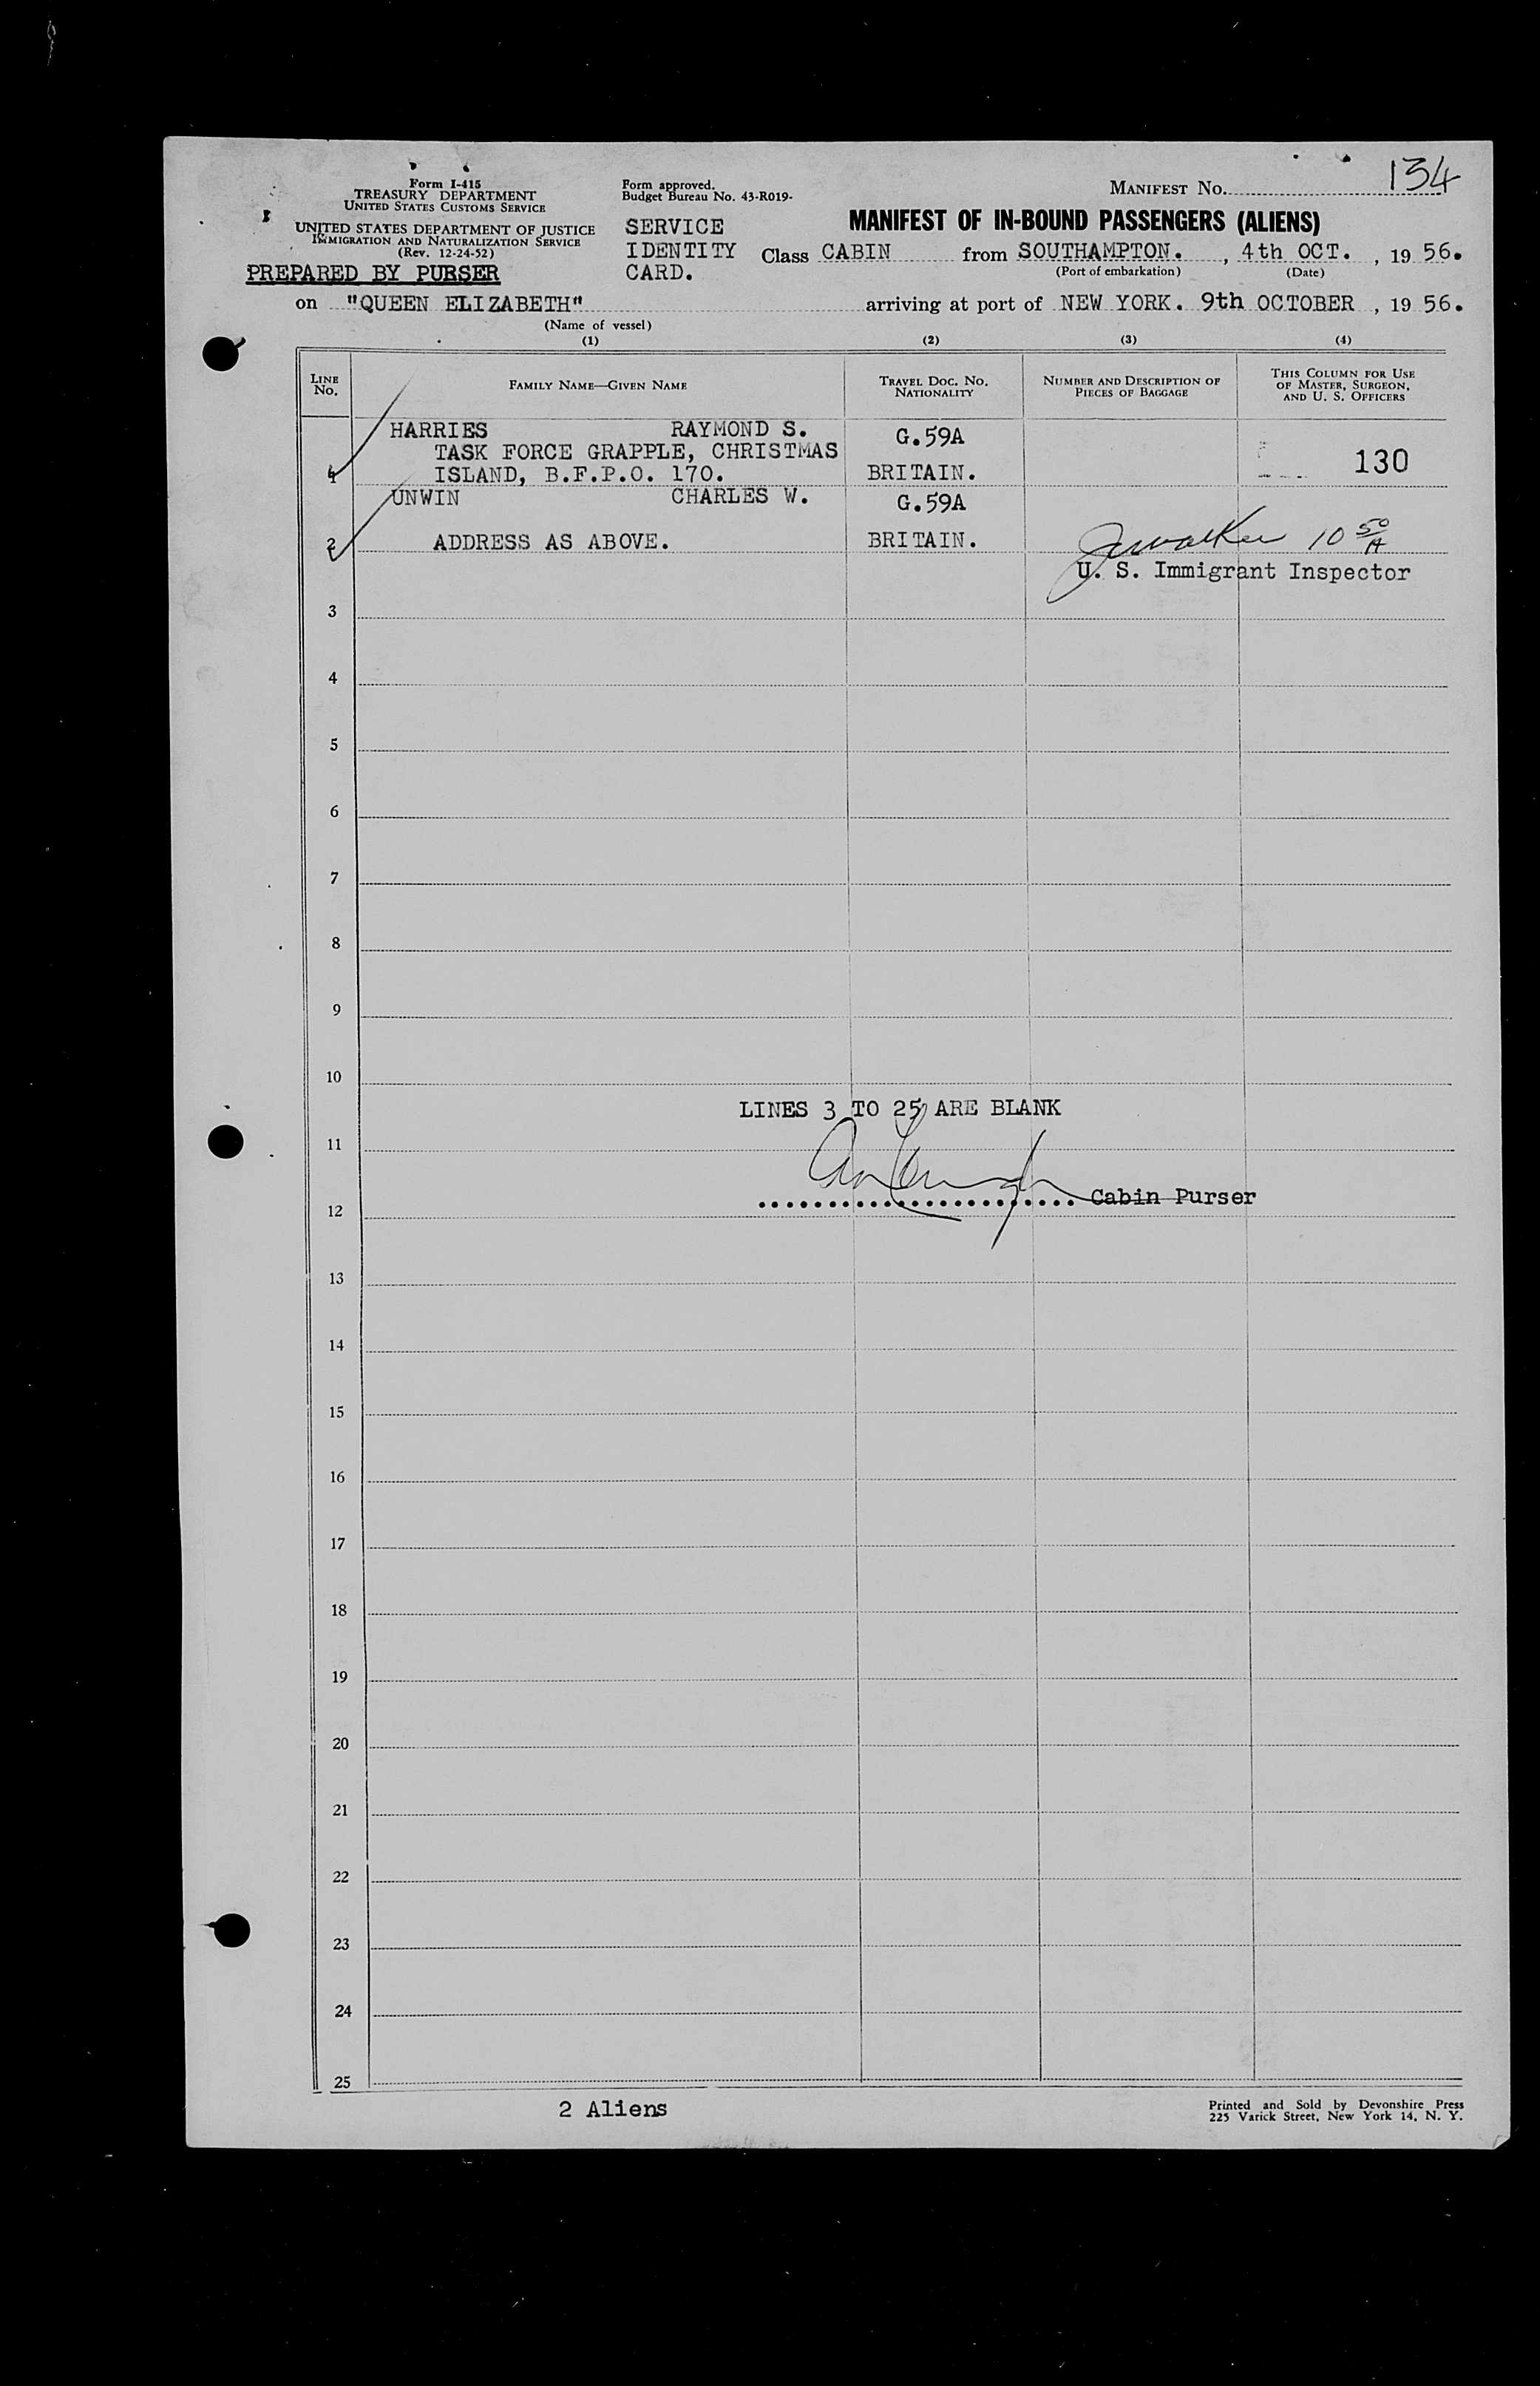 134
Form I-415
TREASURY DEPARTMENT
UNITED STATES CUSTOMS SERVICE
UNITED STATES DEPARTMENT OF JUSTICE
IMMIGRATION AND NATURALIZATION SERVICE
(Rev. 12-24-52)
PREPARED BY PURSER
Form approved.
Budget Bureau No. 43-R019-
SERVICE
IDENTITY
CARD.
MANIFEST NO.
MANIFEST OF IN-BOUND PASSENGERS (ALIENS)
Class CABIN from SOUTHAMPTON. , 4th OCT. , 19 56.
(Port of embarkation) (Date)
on "QUEEN ELIZABETH" arriving at port of NEW YORK. 9th OCTOBER , 19 56.
(Name of vessel)
(1) (2) (3) (4)
LINE NO. FAMILY NAME—GIVEN NAME TRAVEL DOC. NO. NATIONALITY NUMBER AND DESCRIPTION OF PIECES OF BAGGAGE THIS COLUMN FOR USE OF MASTER, SURGEON, AND U. S. OFFICERS
HARRIES RAYMOND S. G.59A
TASK FORCE GRAPPLE, CHRISTMAS
1 ISLAND, B.F.P.O. 170. BRITAIN. 130
UNWIN CHARLES W. G.59A
2 ADDRESS AS ABOVE. BRITAIN. 10 50 A
U. S. Immigrant Inspector
3
4
5
6
7
8
9
10
LINES 3 TO 25 ARE BLANK
11
Cabin Purser
12
13
14
15
16
17
18
19
20
21
22
23
24
25
2 Aliens
Printed and Sold by Devonshire Press
225 Varick Street, New York 14, N. Y.